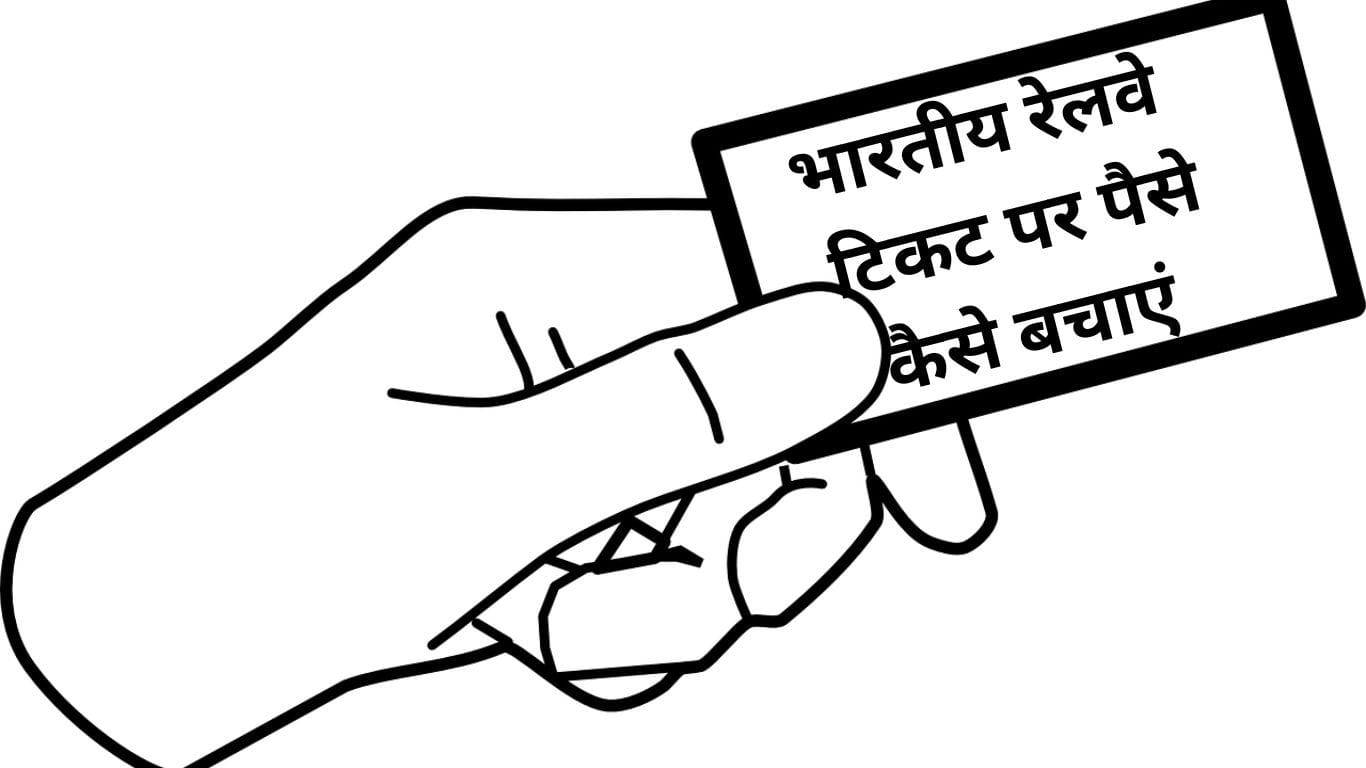 भारतीय रेलवे
टिकट पर पैसे
कैसे बचाएं